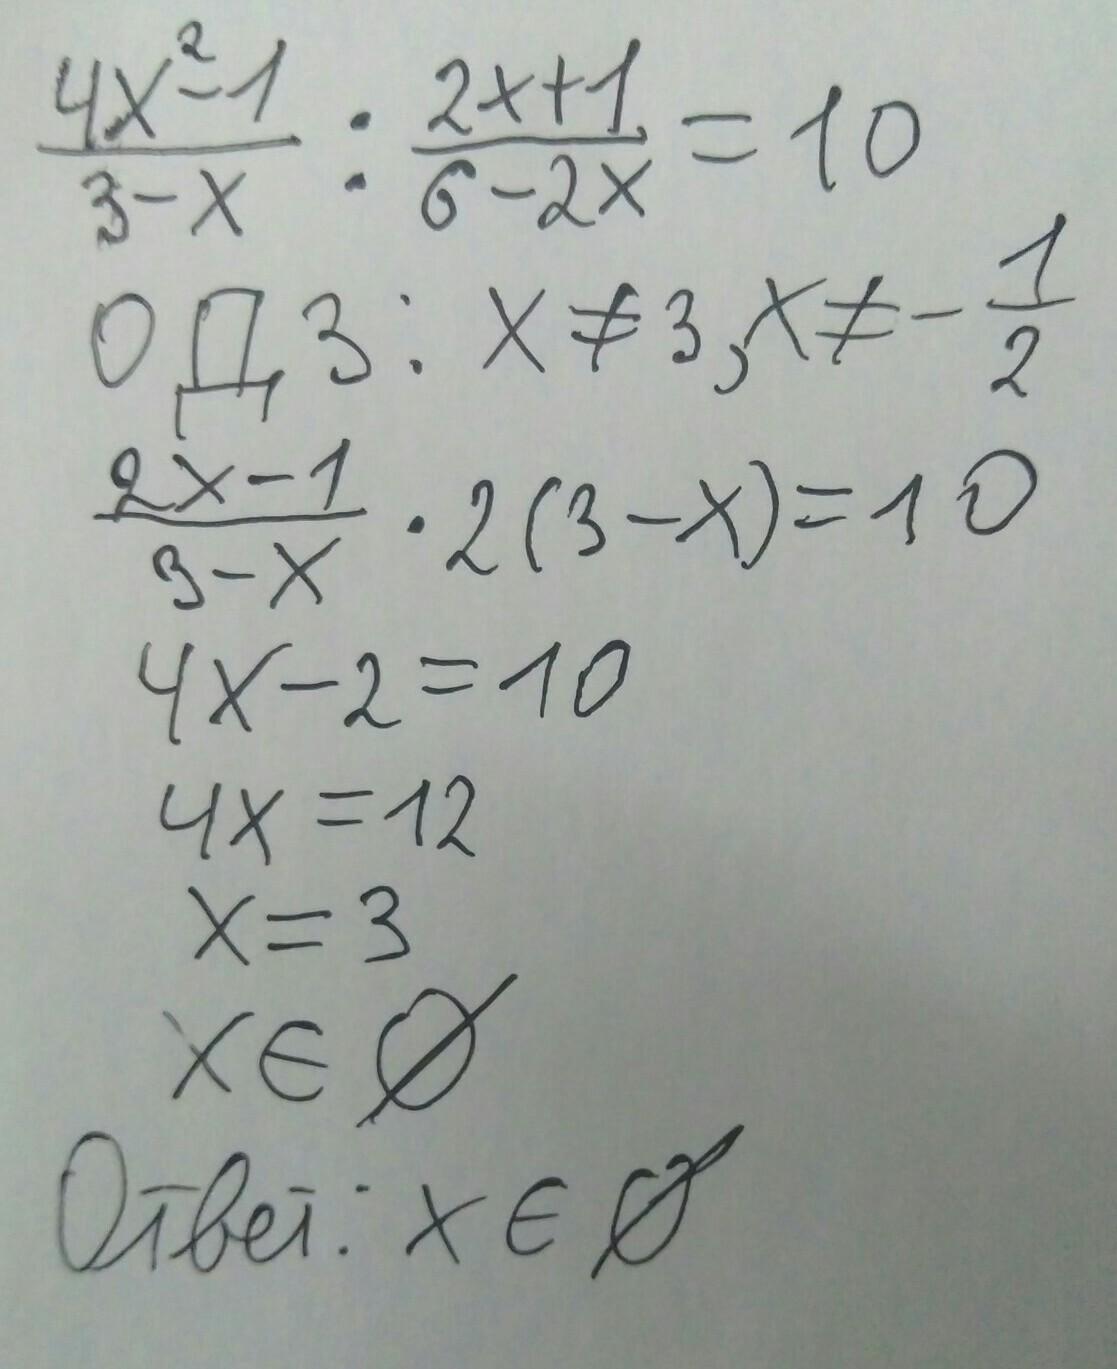 (4x²-1)/(3-x) : (2x+1)/(6-2x) = 10
ОДЗ: x ≠ 3, x ≠ - 1/2
(2x-1)/(3-x) · 2(3-x) = 10
4x-2=10
4x=12
x=3
x∈∅
Ответ: x∈∅